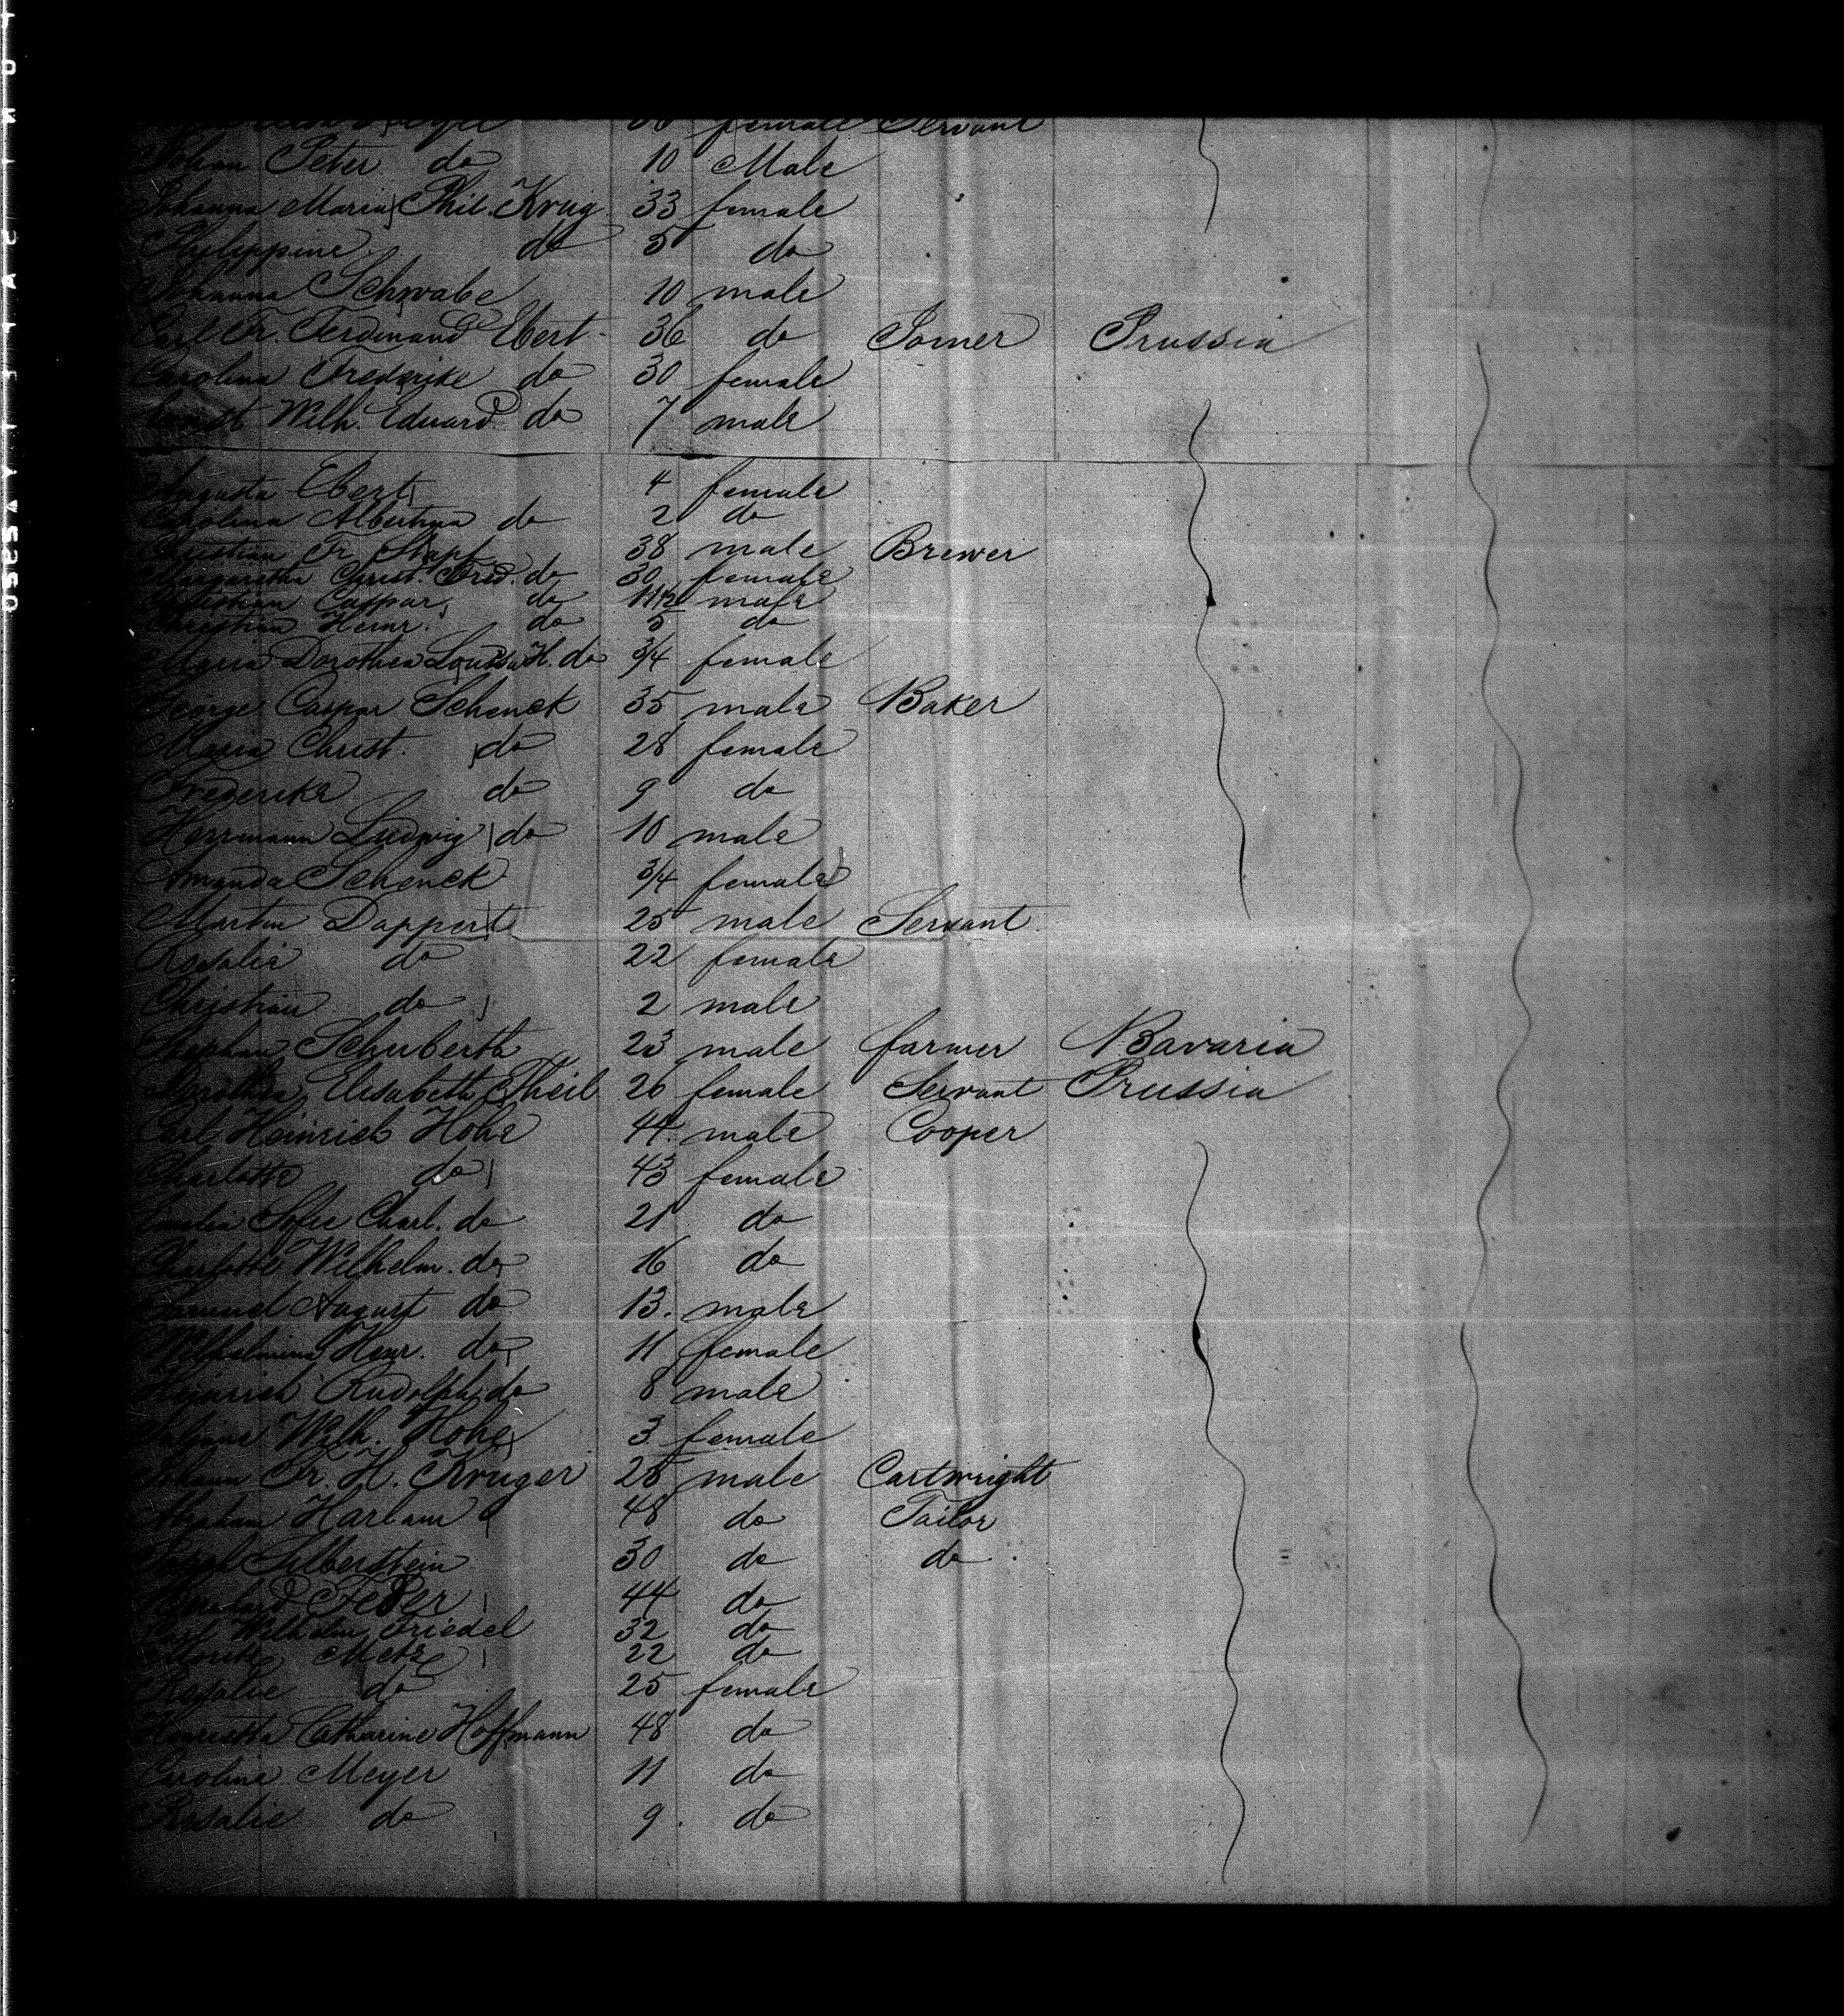 female Servant
Johan Peter do 10 Male
Johanna Maria Phil. Krug 33 female
Philippine do 5 do
Johanna Schwabe 10 male
Carl Fr. Ferdinand Ebert 36 do Joiner Prussia
Carolina Frederike do 30 female
Ernst Wilh. Eduard do 7 male
Augusta Ebert 4 female
Carolina Albertina do 2 do
Christian Fr. Stapf 38 male Brewer
Margaretha Christ. Fred. do 30 female
Christian Caspar do 11 1/2 male
Christian Heinr. do 5 do
Maria Dorothea Louisa H. do 3/4 female
George Caspar Schenck 35 male Baker
Maria Christ. do 28 female
Frederika do 9 do
Herrmann Ludwig do 10 male
Amanda Schenck 3/4 female
Martin Dappert 25 male Servant
Rosalia do 22 female
Christian do 2 male
Stephan Schuberth 23 male farmer Bavaria
Dorothea Elisabeth Theil 26 female Servant Prussia
Carl Heinrich Hohe 44. male Cooper
Charlotte do 43 female
Emelia Sofie Charl. do 21 do
Charlotte Wilhelm. do 16 do
Samuel August do 13. male
Wilhelmina Henr. do 11 female
Heinrich Rudolph do 8 male
Wilh. Hohe 3 female
Johann Fr. H. Kruger 28 male Cartwright
Abraham Harlam 48 do Tailor
Silberstein 30 do do
Feder 44 do
Carl Wilhelm Friedel 32 do
Moritz Metz 22 do
Rosalie do 25 female
Henrietta Catharine Hoffmann 48 do
Caroline Meyer 11 do
Rosalie do 9. do